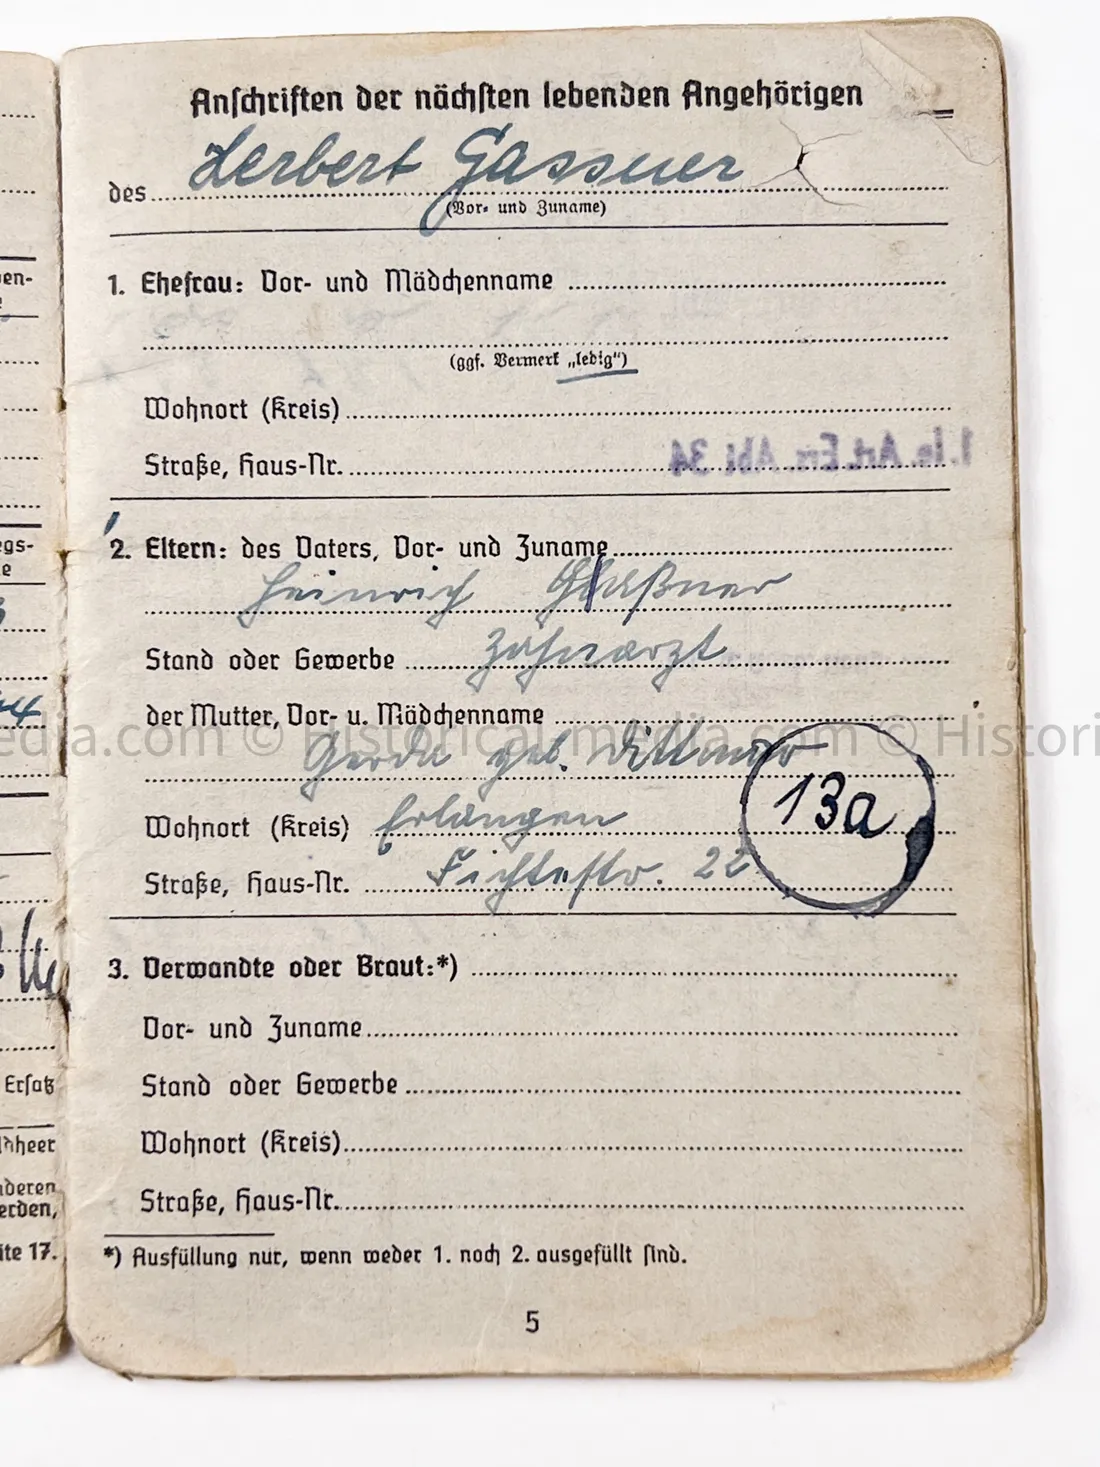 Anschriften der nächsten lebenden Angehörigen
des Herbert Gassner
(Vor- und Zuname)
1. Ehefrau: Vor- und Mädchenname
(ggf. Vermerk „ledig“)
Wohnort (Kreis)
Straße, Haus-Nr.
1. le. Art. Ers. Abt 34
2. Eltern: des Vaters, Vor- und Zuname
Heinrich Gaßner
Stand oder Gewerbe Zahnarzt
der Mutter, Vor- u. Mädchenname
Gerda geb. Dittmar
Wohnort (Kreis) Erlangen
13a
Straße, Haus-Nr. Fichtestr. 22
3. Verwandte oder Braut:*)
Vor- und Zuname
Stand oder Gewerbe
Wohnort (Kreis)
Straße, Haus-Nr.
*) Ausfüllung nur, wenn weder 1. noch 2. ausgefüllt sind.
5
en-
gs-
e
Ersatz
dheer
deren
erden,
ite 17.
edia.com © Historical-media.com © Histori